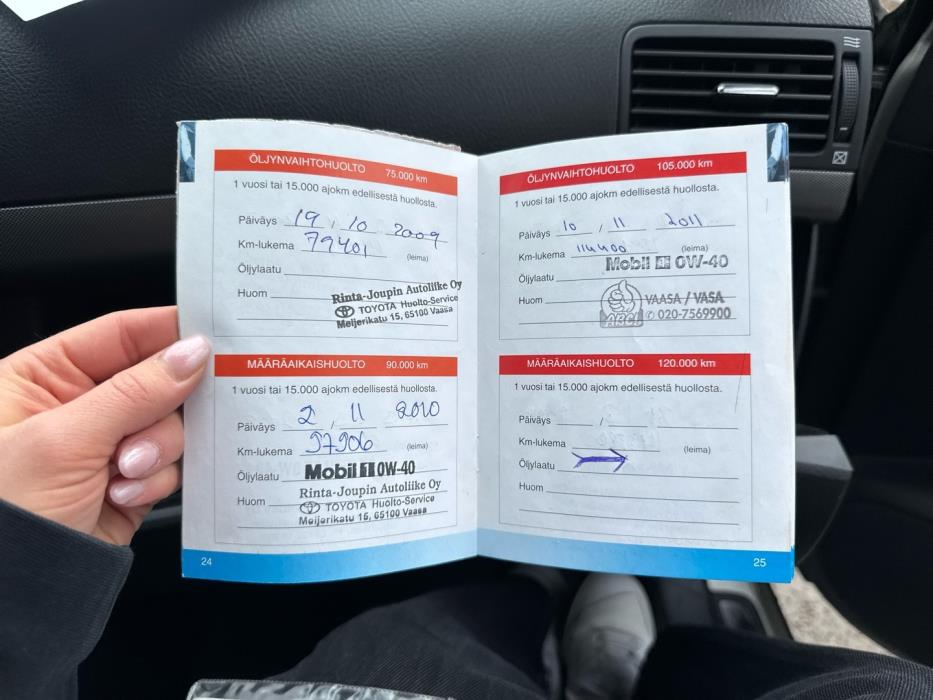 ÖLJYNVAIHTOHUOLTO 75.000 km
1 vuosi tai 15.000 ajokm edellisestä huollosta.
Päiväys 19 / 10 2009
Km-lukema 79401
(leima)
Öljylaatu
Huom
Rinta-Joupin Autoliike Oy
TOYOTA Huolto-Service
Meijerikatu 15, 65100 Vaasa
MÄÄRÄAIKAISHUOLTO 90.000 km
1 vuosi tai 15.000 ajokm edellisestä huollosta.
Päiväys 2 / 11 2010
Km-lukema 97906
(leima)
Öljylaatu Mobil 1 0W-40
Huom Rinta-Joupin Autoliike Oy
TOYOTA Huolto-Service
Meijerikatu 15, 65100 Vaasa
24
ÖLJYNVAIHTOHUOLTO 105.000 km
1 vuosi tai 15.000 ajokm edellisestä huollosta.
Päiväys 10 / 11 2011
Km-lukema 114400
(leima)
Mobil 1 0W-40
Öljylaatu
Huom
VAASA / VASA
020-7569900
MÄÄRÄAIKAISHUOLTO 120.000 km
1 vuosi tai 15.000 ajokm edellisestä huollosta.
Päiväys /
Km-lukema
(leima)
Öljylaatu
Huom
25